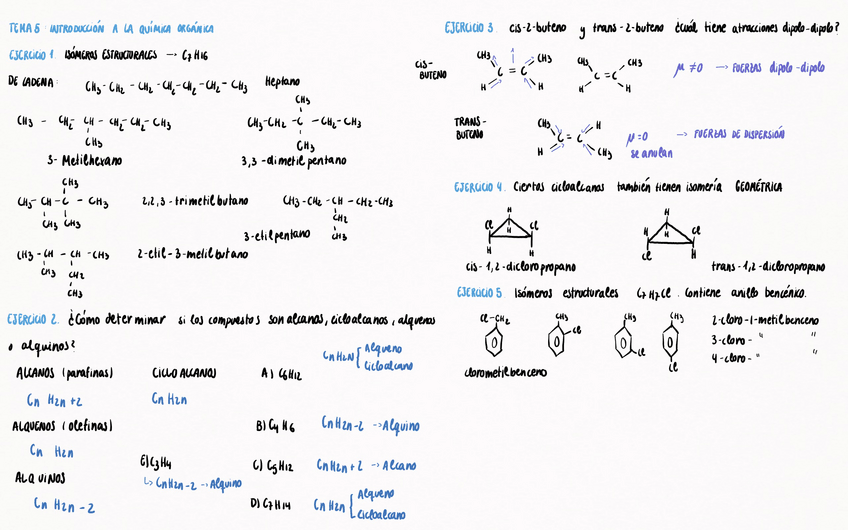 TEMA 5 INTRODUCCIÓN A LA QUÍMICA ORGÁNICA
EJERCICIO 1. ISÓMEROS ESTRUCTURALES → C7H16
DE CADENA: CH3 - CH2 - CH2 - CH2 - CH2 - CH2 - CH3 Heptano
CH3 - CH2 - CH - CH2 - CH2 - CH3
CH3
3- Metilhexano
CH3
CH3-CH2 - C - CH2-CH3
CH3
3,3 -dimetilpentano
CH3
CH3- CH - C - CH3
CH3 CH3
2,2,3 - trimetilbutano
CH3-CH2 - CH - CH2-CH3
CH2
CH3
3-etilpentano
CH3 -CH - CH -CH3
CH3 CH2
CH3
2-etil-3-metilbutano
EJERCICIO 2. ¿Cómo determinar si los compuestos son alcanos, cicloalcanos, alquenos
o alquinos?
ALCANOS (parafinas)
Cn H2n +2
ALQUENOS (olefinas)
Cn H2n
ALQUINOS
Cn H2n - 2
CICLOALCANOS
Cn H2n
E) C3H4
↳ CnH2n-2 → Alquino
A) C6H12 CnH2N { Alqueno
Cicloalcano
B) C4H6 CnH2n-2 → Alquino
C) C5H12 CnH2n+2 → Alcano
D) C7H14 CnH2n { Alqueno
Cicloalcano
EJERCICIO 3. cis-2-buteno y trans-2-buteno ¿cuál tiene atracciones dipolo-dipolo?
CIS-
BUTENO
CH3 CH3
C = C
H H
CH3 CH3
C = C
H H
μ ≠ 0 → FUERZAS dipolo-dipolo
TRANS-
BUTENO
CH3 H
C = C
H CH3
μ = 0 → FUERZAS DE DISPERSIÓN
se anulan
EJERCICIO 4. Ciertos cicloalcanos también tienen isomería GEOMÉTRICA
H
Cl H Cl
H H
cis-1,2-dicloropropano
H
H H Cl
Cl H
trans-1,2-dicloropropano
EJERCICIO 5. Isómeros estructurales C7H7Cl. Contiene anillo bencénico.
Cl-CH2
clorometilbenceno
CH3
Cl
CH3
Cl
CH3
Cl
2-cloro-1-metilbenceno
3-cloro- " "
4-cloro- " "